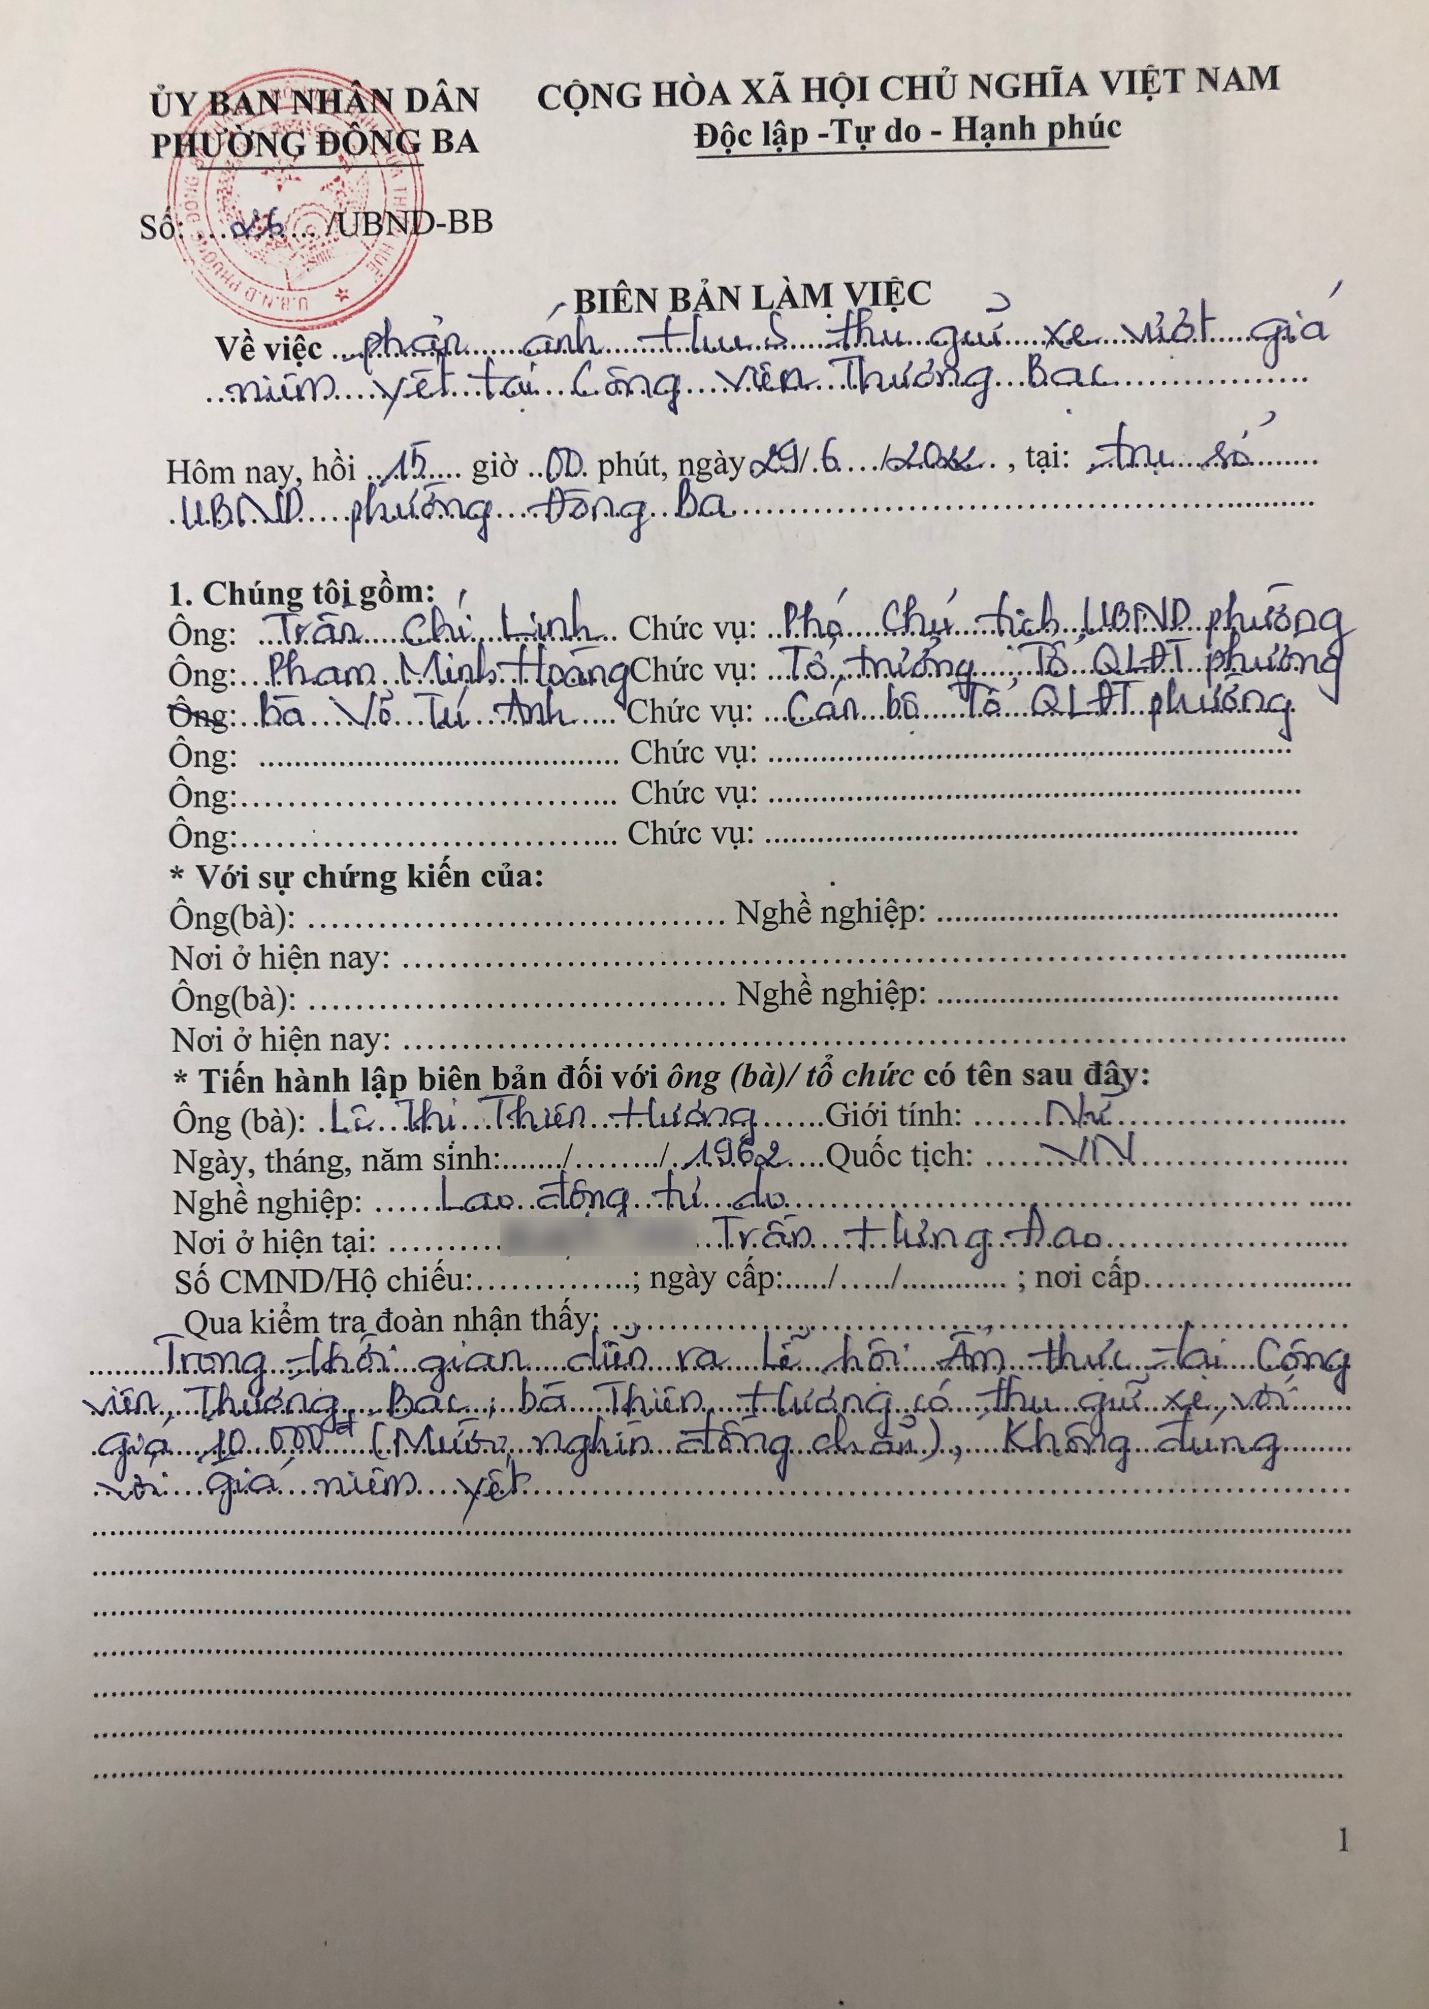 ỦY BAN NHÂN DÂN
PHƯỜNG ĐÔNG BA
CỘNG HÒA XÃ HỘI CHỦ NGHĨA VIỆT NAM
Độc lập -Tự do - Hạnh phúc
Số: ...26... /UBND-BB
BIÊN BẢN LÀM VIỆC
Về việc ..phản ánh thu thu gửi xe vượt giá
niêm yết tại Công viên Thương Bạc
Hôm nay, hồi ..15.... giờ ..00. phút, ngày 29/.6..../2022.. , tại: trụ sở
UBND phường Đông Ba
1. Chúng tôi gồm:
Ông: Trần Chí Linh Chức vụ: Phó Chủ tịch UBND phường
Ông: Phạm Minh Hoàng Chức vụ: Tổ trưởng Tổ QLĐT phường
Ông: bà Võ Tú Anh Chức vụ: Cán bộ Tổ QLĐT phường
Ông: ........................................ Chức vụ: ........................................
Ông:........................................ Chức vụ: ........................................
Ông:........................................ Chức vụ: ........................................
* Với sự chứng kiến của:
Ông(bà): ........................................ Nghề nghiệp: ........................................
Nơi ở hiện nay: ........................................
Ông(bà): ........................................ Nghề nghiệp: ........................................
Nơi ở hiện nay: ........................................
* Tiến hành lập biên bản đối với ông (bà)/ tổ chức có tên sau đây:
Ông (bà): Lê Thị Thiên Hương Giới tính: Nữ
Ngày, tháng, năm sinh:......./......../.1962....Quốc tịch: VN
Nghề nghiệp: Lao động tự do
Nơi ở hiện tại: Trần Hưng Đạo
Số CMND/Hộ chiếu:..............; ngày cấp:...../...../............ ; nơi cấp....................
Qua kiểm tra đoàn nhận thấy:
Trong thời gian diễn ra Lễ hội Ẩm thực tại Công
viên Thương Bạc, bà Thiên Hương có thu gửi xe với
giá 10.000đ (Mười nghìn đồng chẵn), Không đúng
với giá niêm yết
1